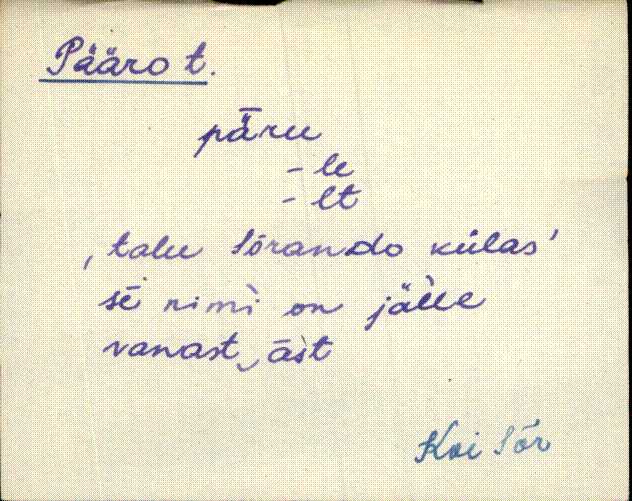 Pääro t.
pǟru
- le
- lt
, talu Sõrando külas'
sē nimì on jälle
vanast‿ast
Koi Sõr